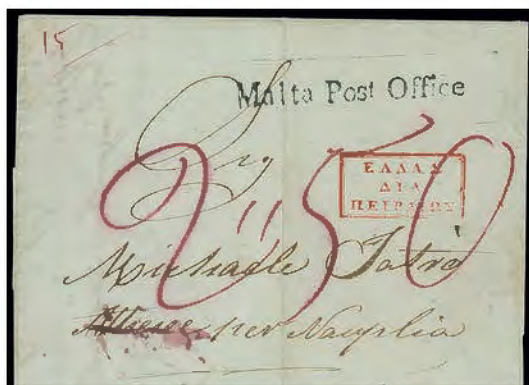 15
Malta Post Office
Sig
ΕΛΛΑΣ
ΔΙΑ
ΠΕΙΡΑΙΩΣ
2"50
Michaele Iatrà
Athene per Nauplia